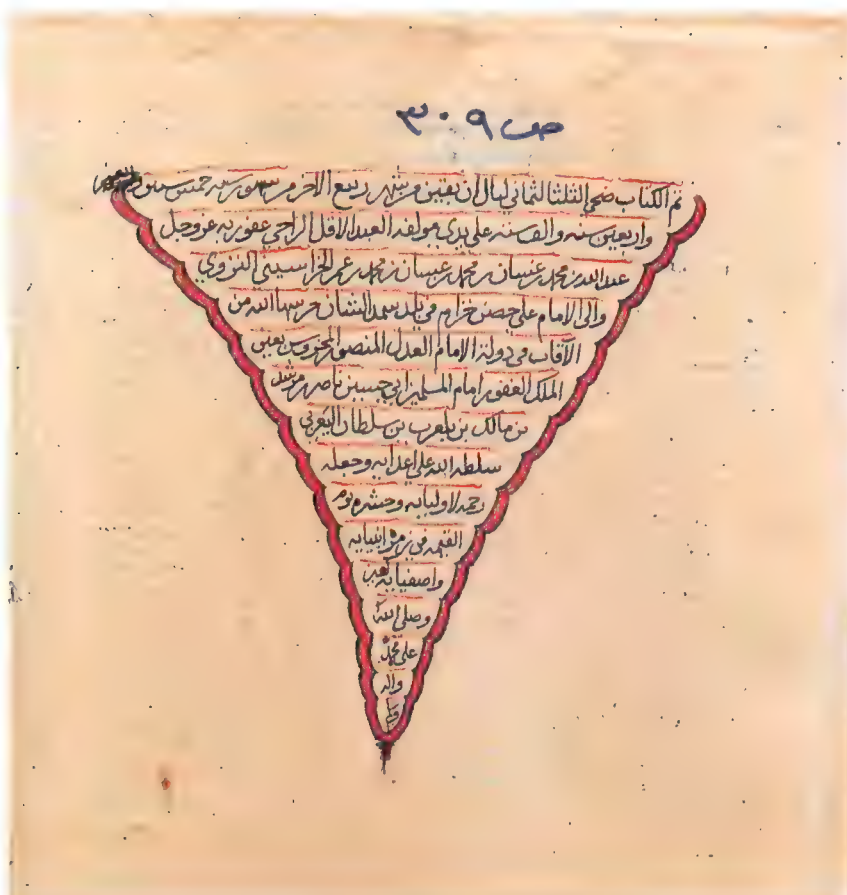 ص ٣٠٩
تم الكتاب ضحى الثلثا لثماني ليال ان بقين من شهر ربيع الاخر من شهور سنه خمس سنين
واربعين سنه والف سنه على يدي مولفه العبد الاقل الراجي عفو ربه عز وجل
عبد الله بن محمد بن غسان بن محمد بن غسان بن محمد بن عمر الخراسيني النزوي
والى الامام على حصن خزام في بلد سمد الشان حرسها الله من
الآفات في دولة الامام العدل المنصور المحروس بعين
الملك الغفور امام المسلمين ابي جبين ناصر بن مرشد
بن مالك بن بلعرب بن سلطان اليعربي
سلطه الله على اعدايه وجعله
رحمه لاوليايه وحشره يوم
القيمه في زمرة انبيايه
واصفيايه
وصلى الله
على محمد
واله